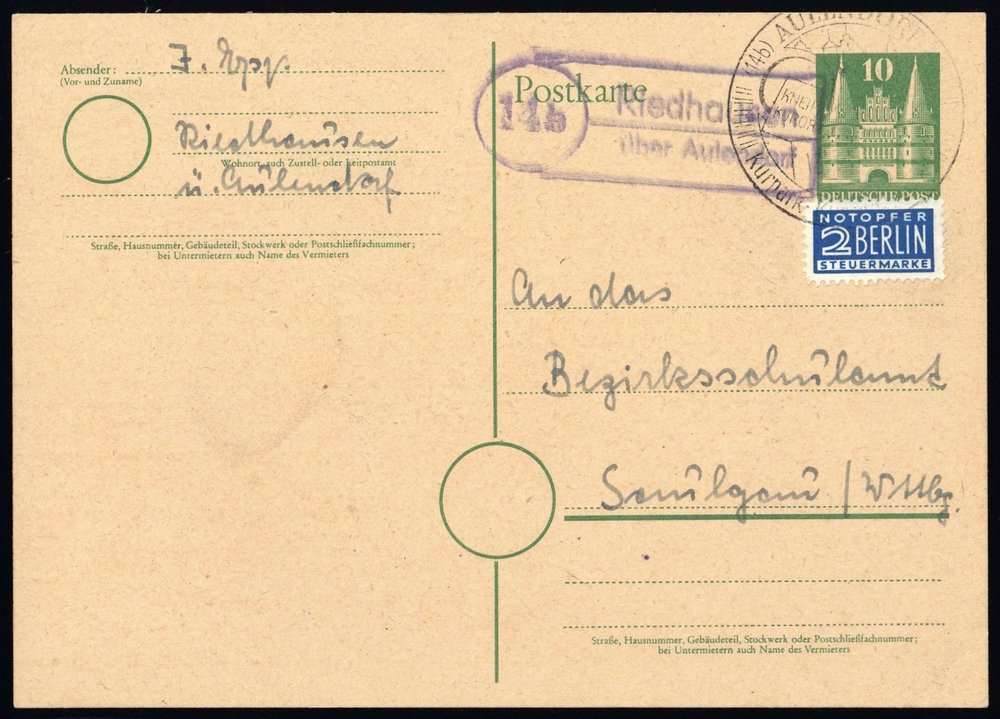 Absender: J. Epp.
(Vor- und Zuname)
Riedhausen
Wohnort, auch Zustell- oder Leitpostamt
ü. Aulendorf
Straße, Hausnummer, Gebäudeteil, Stockwerk oder Postschließfachnummer;
bei Untermietern auch Name des Vermieters
Postkarte
14b
Riedhausen
über Aulendorf
(14b) AULENDORF
Kurpark
10
DEUTSCHE POST
NOTOPFER
2 BERLIN
STEUERMARKE
An das
Bezirksschulamt
Saulgau / Wttbg.
Straße, Hausnummer, Gebäudeteil, Stockwerk oder Postschließfachnummer;
bei Untermietern auch Name des Vermieters